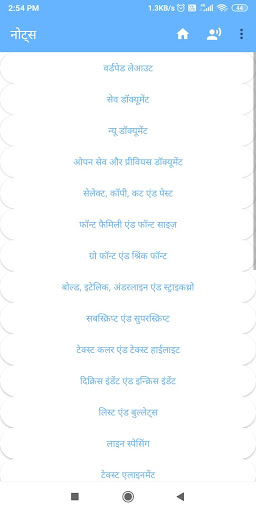 2:54 PM
1.3KB/s
44
नोट्स
वर्डपेड लेआउट
सेव डॉक्यूमेंट
न्यू डॉक्यूमेंट
ओपन सेव और प्रीवियस डॉक्यूमेंट
सेलेक्ट, कॉपी, कट एंड पेस्ट
फॉन्ट फैमिली एंड फॉन्ट साइज़
ग्रो फॉन्ट एंड श्रिंक फॉन्ट
बोल्ड, इटेलिक, अंडरलाइन एंड स्ट्राइकथ्रो
सबस्क्रिप्ट एंड सुपरस्क्रिप्ट
टेक्स्ट कलर एंड टेक्स्ट हाईलाइट
दिक्रिस इंडेंट एंड इन्क्रिस इंडेंट
लिस्ट एंड बुल्लेट्स
लाइन स्पेसिंग
टेक्स्ट एलाइनमेंट